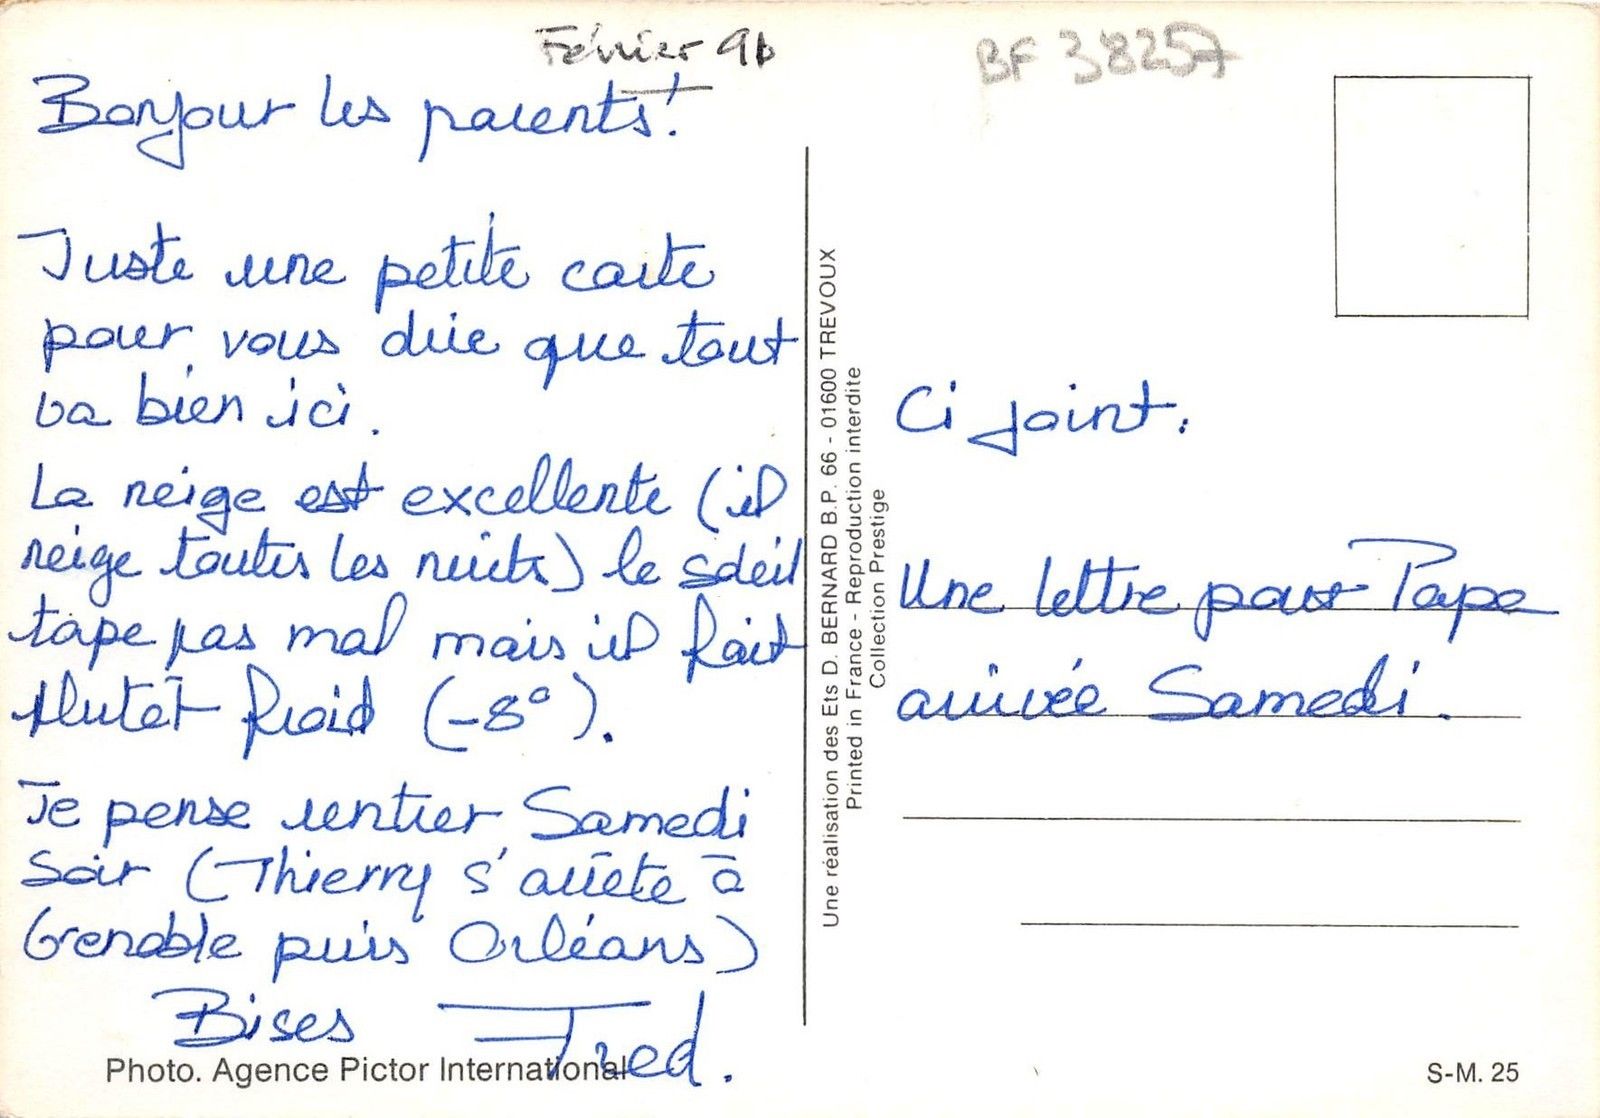 Février 96
BF 38257
Bonjour les parents !
Juste une petite carte
pour vous dire que tout
va bien ici.
La neige est excellente (il
neige toutes les nuits) le soleil
tape pas mal mais il fait
plutôt froid (-8°).
Je pense rentrer Samedi
Soir (Thierry s'arrête à
Grenoble puis Orléans)
Bises Fred.
Photo. Agence Pictor International
Une réalisation des Ets D. BERNARD B.P. 66 - 01600 TREVOUX
Printed in France - Reproduction interdite
Collection Prestige
Ci joint :
Une lettre pour Papa
arrivée Samedi.
S-M. 25